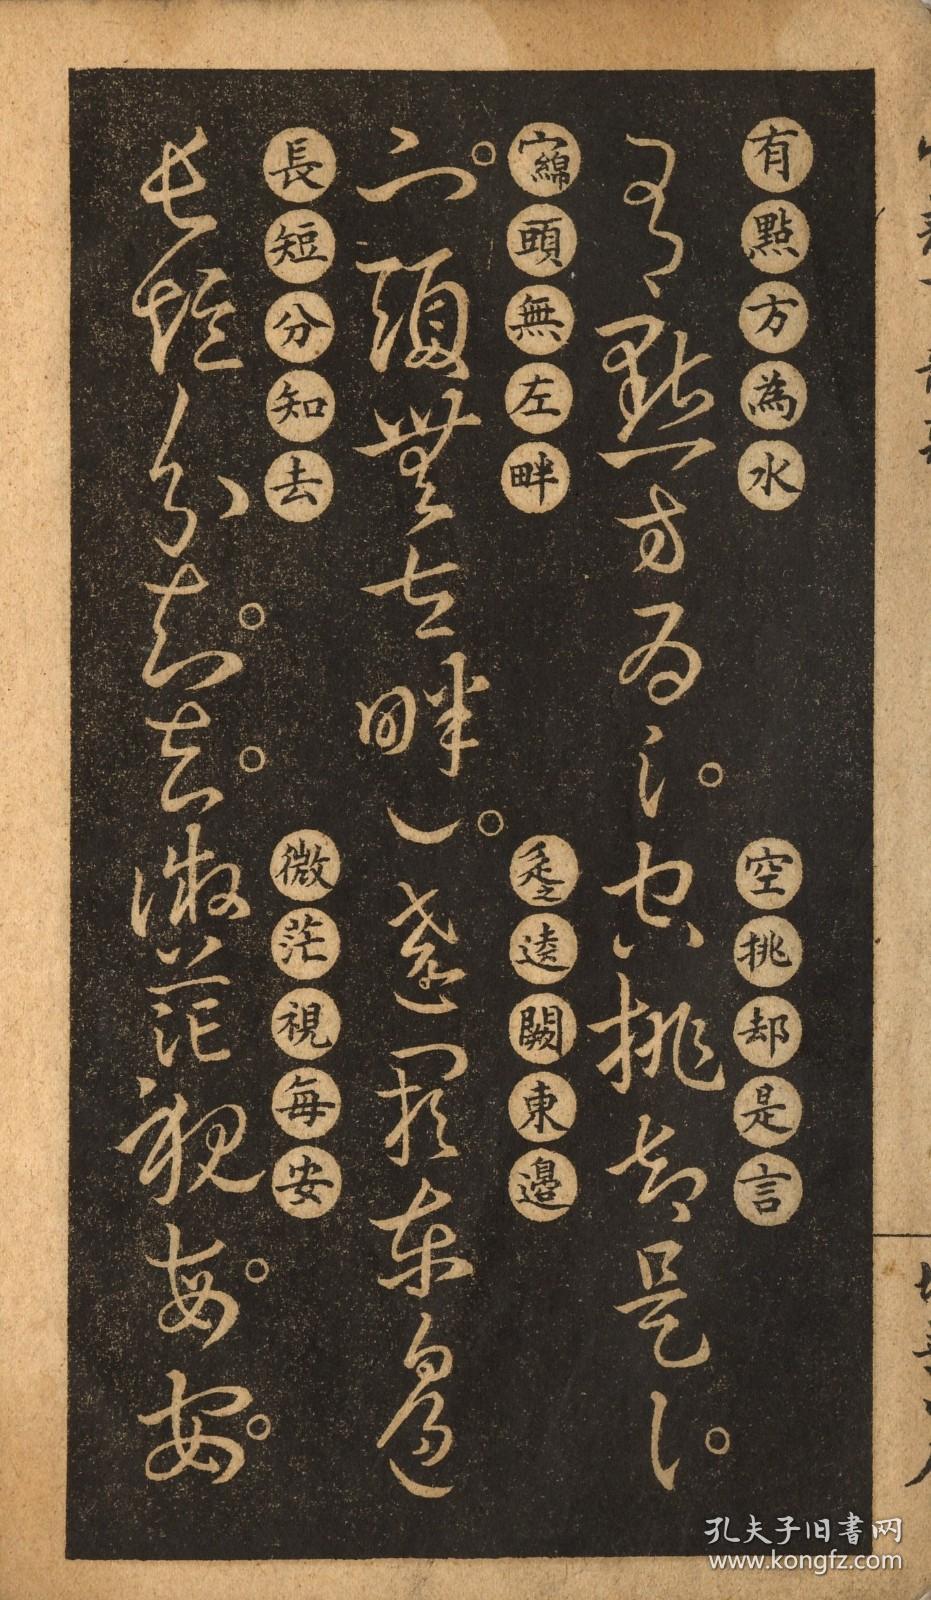 有點方為水
空挑却是言
宀綿頭無左畔
辵逺闕東邊
長短分知去
微茫視每安
有點方為氵空挑却是訁
宀頭無左畔辶遶闕東邊
長短分知去微茫視每安
孔夫子旧書网
www.kongfz.com